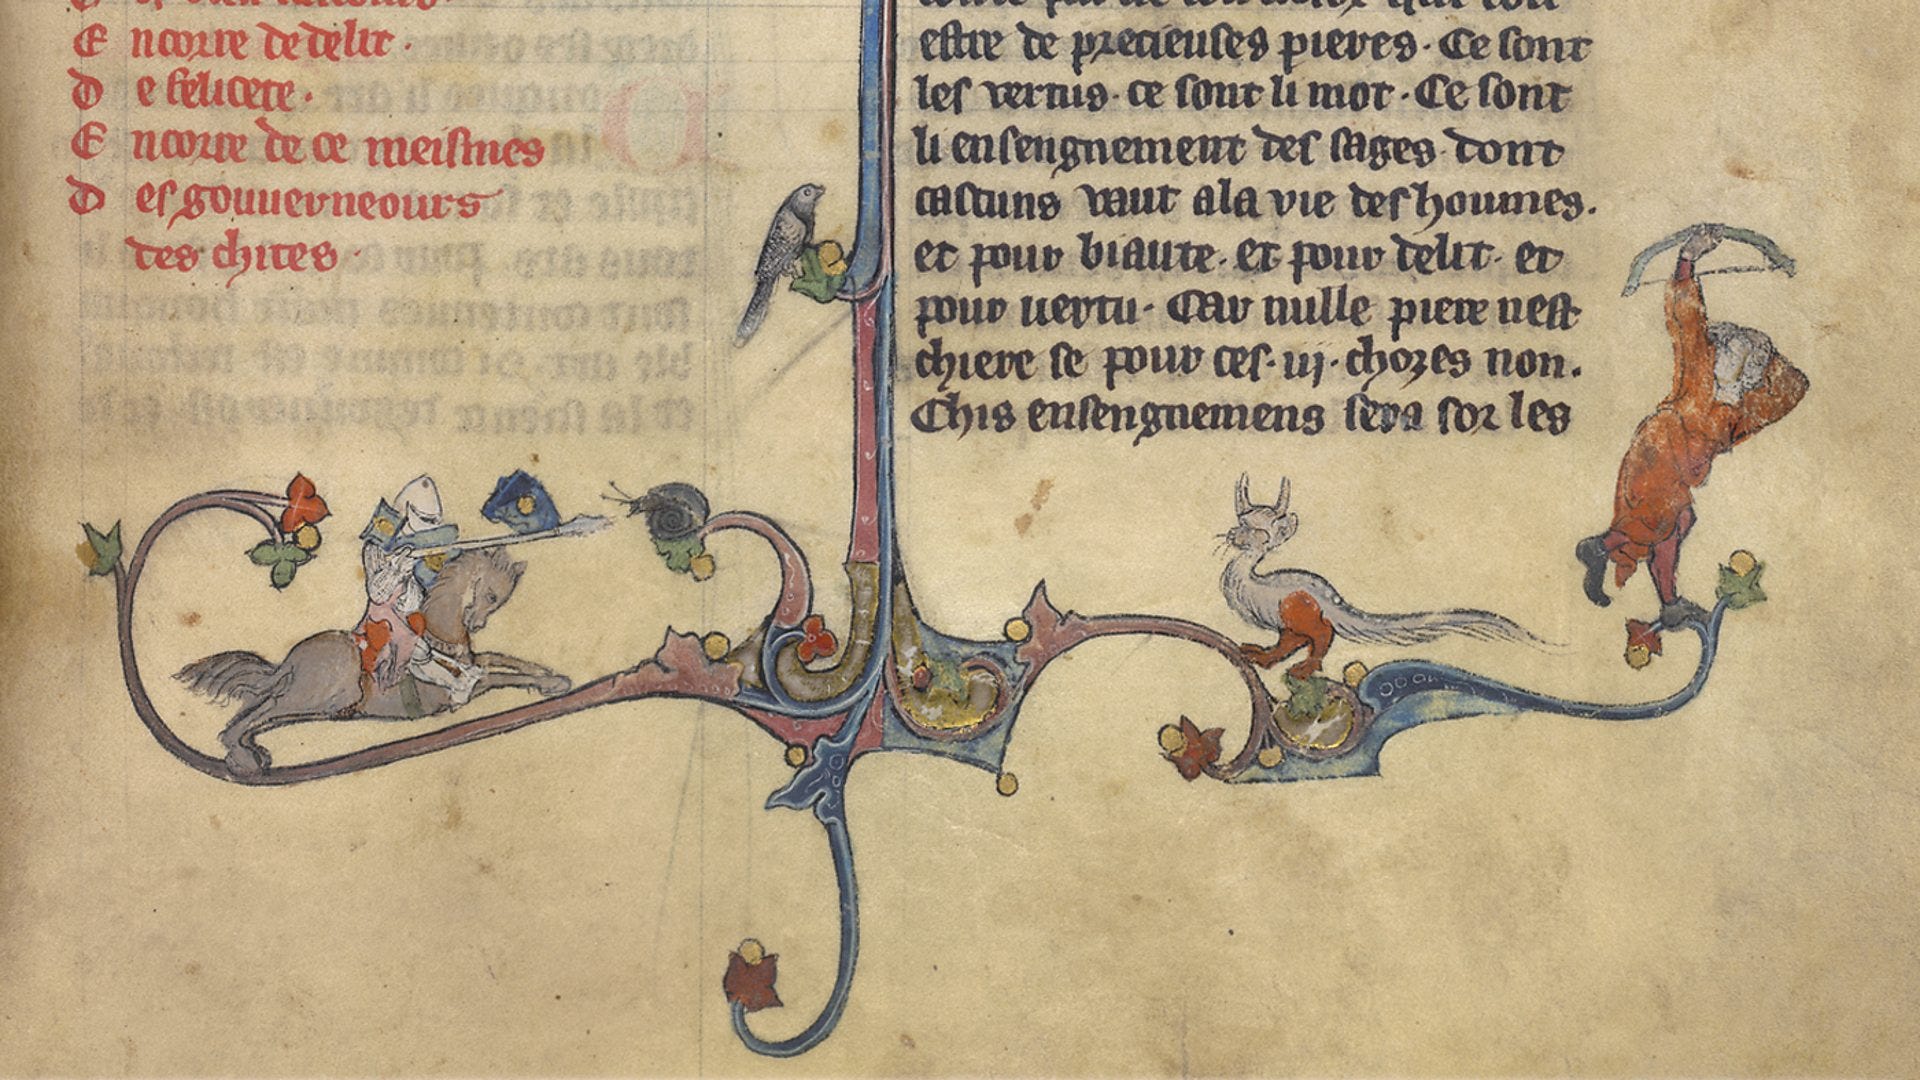 E ncorre de delit·
D e felicete·
E ncorre de ce meismes
D es gouuerneours
des chites·
estre de precieuses pieres· Ce sont
les vertus· ce sont li mot· Ce sont
li ensengnement des sages· dont
cascuns vaut a la vie des houmes.
et pour biaute· et pour delit· et
pour uertu· Car nulle piere nest
chiere se pour ces· iij· chozes non.
Chis ensengnemens sera sor les